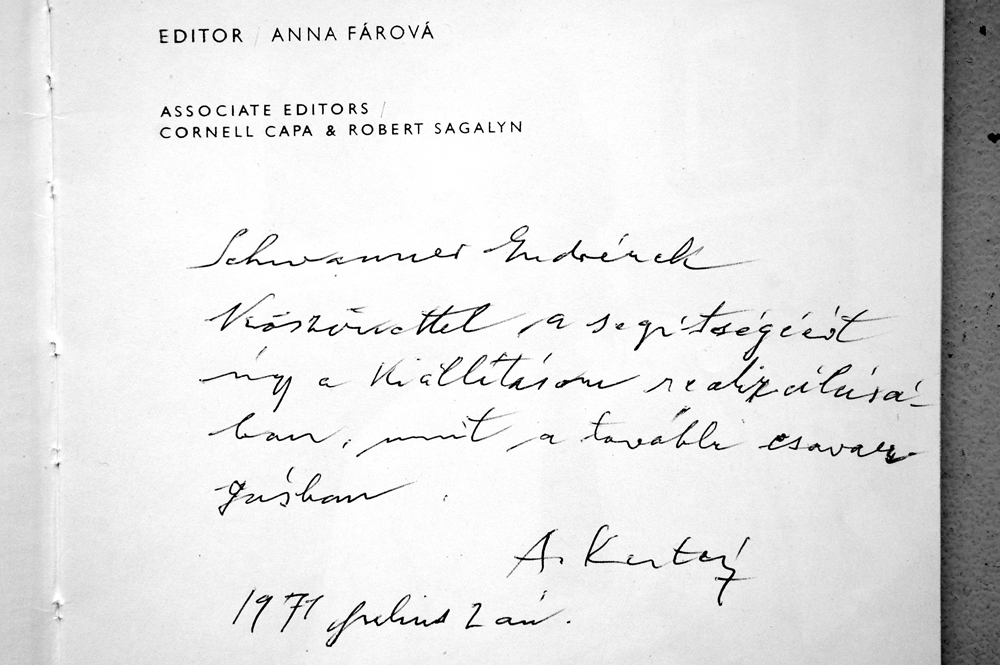 EDITOR / ANNA FÁROVÁ
ASSOCIATE EDITORS /
CORNELL CAPA & ROBERT SAGALYN
Schwanner Endrének
Köszönettel a segítségéért
úgy a Kiállításom realizálásá-
ban, mint a további csavar-
gásban.
A. Kertész
1971 Julius 2 án.